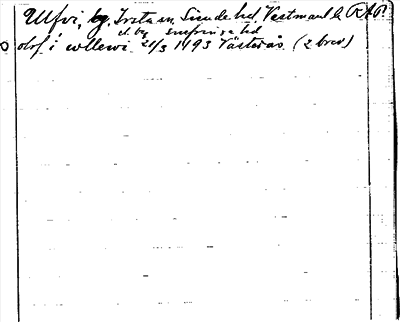 Ullvi, by, Irsta sn, Siende hd, Vestmanl. RAP.
el. by snefringe hd
olof i wllewi 21/3 1493 Västerås (2 brev)